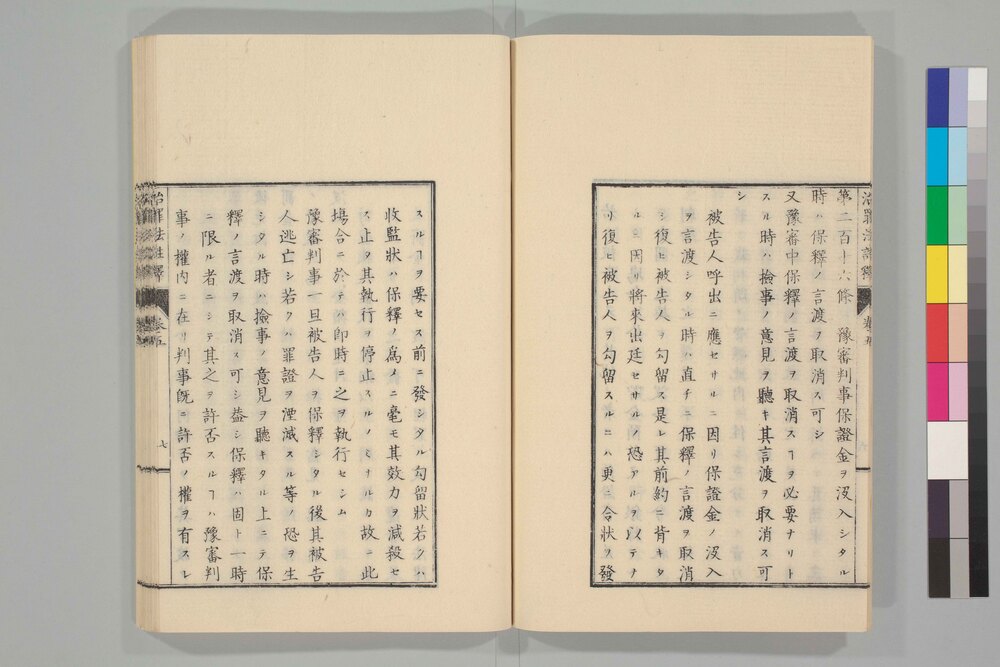 治罪法註釋 卷五
第二百十六條 豫審判事保證金ヲ沒入シタル
時ハ保釋ノ言渡ヲ取消ス可シ
又豫審中保釋ノ言渡ヲ取消スヿヲ必要ナリト
スル時ハ撿事ノ意見ヲ聽キ其言渡ヲ取消ス可
シ
被告人呼出ニ應セサルニ因リ保證金ノ沒入
ヲ言渡シタル時ハ直チニ保釋ノ言渡ヲ取消
シ復ヒ被告人ヲ勾留ス是レ其前約ニ背キタ
ルニ因リ將來出廷セサルノ恐アルヲ以テナ
リ復ヒ被告人ヲ勾留スルニハ更ニ令狀ヲ發
スルヿヲ要セス前ニ發シタル勾留狀若クハ
收監狀ハ保釋ノ爲メニ毫モ其效力ヲ減殺セ
ス止タ其執行ヲ停止スルノミナルカ故ニ此
塲合ニ於テハ卽時ニ之ヲ執行セシム
豫審判事一旦被告人ヲ保釋シタル後其被告
人逃亡シ若クハ罪證ヲ湮滅スル等ノ恐ヲ生
シタル時ハ撿事ノ意見ヲ聽キタル上ニテ保
釋ノ言渡ヲ取消ス可シ葢シ保釋ハ固ト一時
ニ限ル者ニシテ其之ヲ許否スルヿハ豫審判
事ノ權内ニ在リ判事旣ニ許否ノ權ヲ有スレ
治罪法註釋 卷五
七